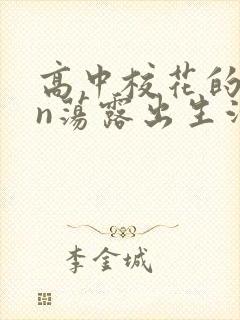 高中校花的
n荡露出生
李金城